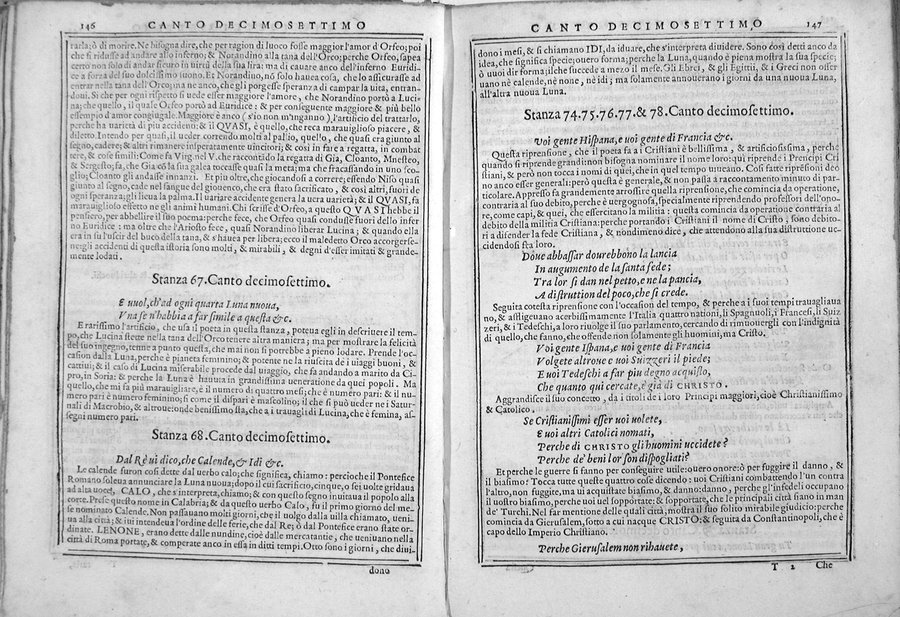 146 CANTO DECIMOSETTIMO
rarla; ò di morire. Ne bisogna dire, che per ragion di luoco fosse maggior l'amor d'Orfeo; poi
che si ridusse ad andare allo inferno; & Norandino alla tana dell'Orco; perche Orfeo, sapea
certo non solo di andar sicuro in virtù della sua lira: ma di cauare anco dell'inferno Euridi-
ce a forza del suo dolcissimo suono. Et Norandino, nó solo hauea cosa, che lo assicurasse ad
entrar nella tana dell'Orco; ma ne anco, che gli porgesse speranza di campar la uita, entran-
doui. Si che per ogni rispetto si uede esser maggiore l'amore, che Norandino portò a Luci-
na; che quello, il quale Orfeo portò ad Euridice: & per conseguente maggiore & più bello
essempio d'amor coniugale. Maggiore è anco (s'io non m'inganno) l'artificio del trattarlo,
perche ha varietà di piu accidenti: & il QVASI, è quello, che reca marauiglioso piacere, &
diletto. Intendo per quasi, il ueder correndo molti al pallio, quello, che quasi era giunto al
segno, cadere; & altri rimanere insperatamente uincitori; & così in fare a regatta, in combat
tere, & cose simili: Come fa Virg. nel V. che raccontádo la regatta di Gia, Cloanto, Mnesteo,
& Sergesto; fa, che Gia có la sua galea toccasse quasi la meta; ma che fracassando in uno sco-
glio; Cloanto gli andasse innanzi. Et piu oltre, che giocandosi a correre; essendo Niso quasi
giunto al segno, cade nel sangue del giouenco, che era stato sacrificato, & così altri, fuori de
ogni speranza; gli lieua la palma. Il uariare accidente genera la uera uarietà; & il QVASI, fa
marauiglioso effetto ne gli animi humani. Chi scrisse d'Orfeo, a questo QVASI hebbe il
pensiero, per abbellire il suo poema: perche fece, che Orfeo quasi condusse fuori dello infer
no Euridice: ma oltre che l'Ariosto fece, quasi Norandino liberar Lucina; & quando ella
era in su l'uscir del buco della tana, & s'hauea per libera; ecco il maledetto Orco accorgerse-
ne: gli accidenti di questa istoria sono molti, & mirabili, & degni d'esser imitati & grande-
mente lodati.
Stanza 67. Canto decimosettimo.
E uuol, ch'ad ogni quarta Luna nuoua,
Vna se n'habbia a far simile a questa &c.
E rarissimo l'artificio, che usa il poeta in questa stanza, poteua egli in descriuere il tem-
po, che Lucina stette nella tana dell'Orco tenere altra maniera; ma per mostrare la felicità
del suo ingegno, tenne a punto questa, che mai non si potrebbe a pieno lodare. Prende l'oc-
casion dalla Luna, perche è pianeta feminino; & potente ne la riuscita de i uiaggi buoni, &
cattiui; & il caso di Lucina miserabile procede dal uiaggio, che fa andando a marito da Ci-
pro, in Soria; & perche la Luna è hauuta in grandissima ueneratione da quei popoli. Ma
quello, che mi fa più marauigliare, è il numero di quattro mesi; che è numero pari: & il nu-
mero pari è numero feminino; si come il dispari è mascolino; il che si può ueder ne i Satur-
nali di Macrobio, & altroue: onde benissimo sta, che a i trauagli di Lucina, che è femina, as-
segni numero pari.
Stanza 68. Canto decimosettimo.
Dal Rè ui dico, che Calende, & Idi &c.
Le calende furon così dette dal uerbo calo; che significa, chiamo: percioche il Pontefice
Romano soleua annunciare la Luna nuoua; dopo il cui sacrificio, cinque, o sei uolte gridaua
ad alta uoce, CALO, che s'interpreta, chiamo; & con questo segno inuitaua il popolo alla
corte. Prese questo nome in Calabria; & da questo uerbo Calo, fu il primo giorno del me-
se nominato Calende. Non passauano molti giorni, che il uolgo dalla uilla chiamato, ueni-
ua alla città; & iui intendeua l'ordine delle ferie, che dal Re; ò dal Pontefice erano state or-
dinate. LENONE, erano dette dalle nundine, cioè dalle mercatantie, che ueniuano nella
città di Roma portate, & comperate anco in essa in ditti tempi. Otto sono i giorni, che diui-
dono
CANTO DECIMOSETTIMO 147
dono i mesi, & si chiamano IDI, da iduare, che s'interpreta diuidere. Sono così detti anco da
idea, che significa specie; ouero forma; perche la Luna, quando è piena mostra la sua specie;
ò uuoi dir forma; il che succede a mezo il mese. Gli Ebrei, & gli Egittii, & i Greci non osser
uano nè calende, nè none, nè idi; ma solamente annouerano i giorni da una nuoua Luna,
all'altra nuoua Luna.
Stanza 74. 75. 76. 77. & 78. Canto decimosettimo.
Voi gente Hispana, e uoi gente di Francia &c.
Questa riprensione, che il poeta fa a i Cristiani è bellissima, & artificiosissima, perche
quando si riprende grandi: non bisogna nominare il nome loro: qui riprende i Principi Cri
stiani, & però non tocca i nomi di quei, che in quel tempo uiueano. Così fatte ripresioni deo
no anco esser generali: però questa è generale, & non passa a raccontamento minuto di par-
ticolare. Appresso fa grandemente arrossire quella riprensione, che comincia da operatione,
contraria al suo debito, perche è uergognosa, specialmente riprendendo professori dell'ono-
re, come capi, & quei, che essercitano la militia: questa comincia da operatione contraria al
debito della militia Cristiana: perche portando i Cristiani il nome di Cristo, sono debito-
ri a difender la fede Cristiana, & nondimeno dice, che attendono alla sua distruttione uc-
cidendosi fra loro.
Doue abbassar dourebbono la lancia
In augumento de la santa fede;
Tra lor si dan nel petto, e ne la pancia,
A distruttion del poco, che si crede.
Seguita cotesta ripresion con l'occasion del tempo, & perche a i suoi tempi trauagliaua
no, & affliggeuano acerbissimamente l'Italia quattro nationi, li Spagnuoli, i Francesi, li Suiz
zeri, & i Tedeschi, a loro riuolge il suo parlamento, cercando di rimuouergli con l'indignità
di quello, che fanno, che offende non solamente gli huomini, ma Cristo.
Voi gente Ispana, e uoi gente di Francia
Volgete altroue e uoi Suizzeri il piede;
E uoi Tedeschi a far piu degno acquisto,
Che quanto qui cercate, è già di CHRISTO.
Aggrandisce il suo concetto, da i titoli de i loro Principi maggiori, cioè Christianissimo
& Catolico.
Se Cristianissimi esser uoi uolete,
E uoi altri Catolici nomati,
Perche di CHRISTO gli huomini uccidete?
Perche de' beni lor son dispogliati?
Et perche le guerre si fanno per conseguire utile: ouero onore: ò per fuggire il danno, &
il biasimo: Tocca tutte queste quattro cose dicendo: uoi Cristiani combattendo l'un contra
l'altro, non fuggite, ma ui acquistate biasimo, & danno: danno, perche gl'infedeli occupano
il uostro biasimo, perche uoi uel sopportate: & sopportate, che i principali città siano in man
de' Turchi. Nel far mentione delle quali città; mostra il suo solito mirabile giudicio: perche
comincia da Gierusalem, sotto a cui nacque CRISTO; & seguita da Constantinopoli, che è
capo dello Imperio Christiano.
Perche Gierusalem non rihauete,
T 2 Che